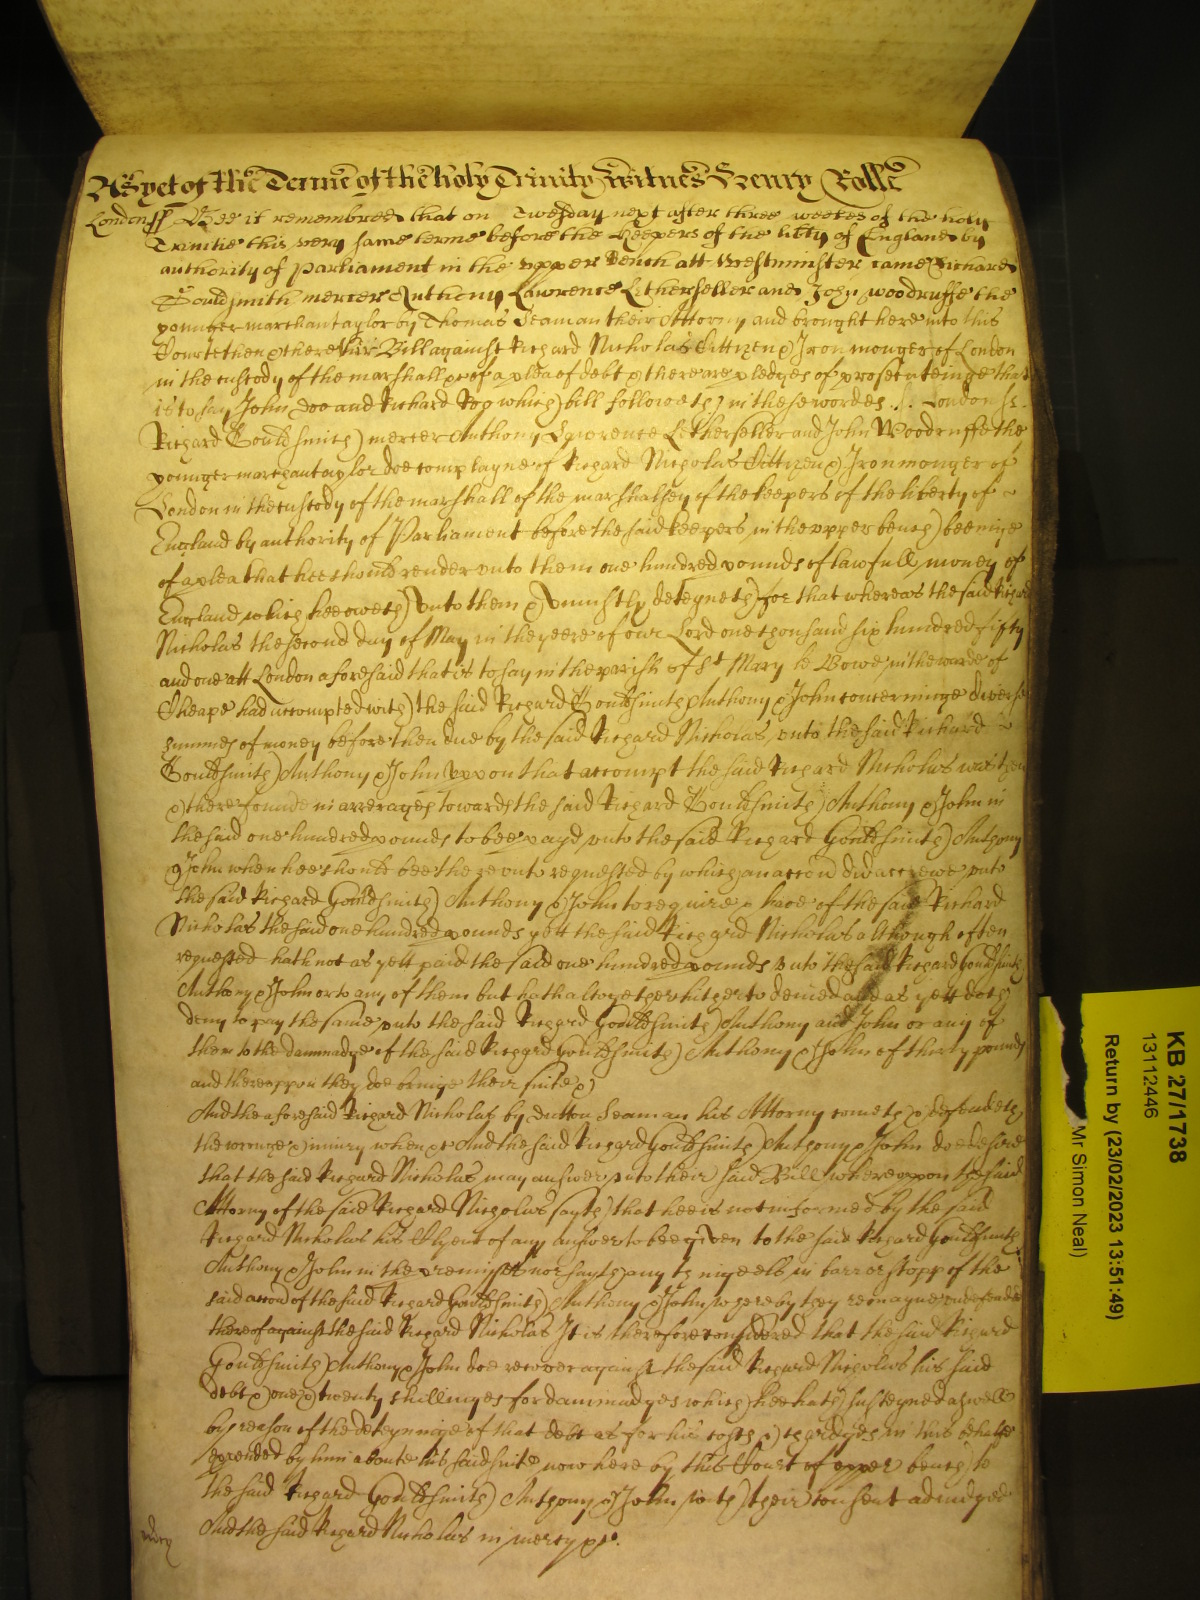 As yet of the Terme of the holy Trinity Witnes Henry Rolle
London ss Bee it remembred that on Twesday next after three weekes of the holy
Trinitie this very same terme before the Keepers of the libty of England by
authority of Parliament in the vpper Bench att Westminster came Richard
Gouldsmith mercer Anthony Lawrence Letherseller and John Woodruffe the
younger marchantaylor by Thomas Seaman their Attorny and brought here into this
Court then & there their Bill against Richard Nicholas Cittizen & Ironmonger of London
in the custody of the marshall &c of a plea of debt & there are pledges of prosecuteinge that
is to say John Doe and Richard Roo which bill followeth in these wordes ./. London ss.
Richard Gouldsmith mercer Anthony Lawrence Letherseller and John Woodruffe the
younger marchantaylor doe complayne of Richard Nicholas Cittizen & Ironmonger of
London in the custody of the marshall of the marshalsey of the keepers of the liberty of
England by authority of Parliament before the said keepers in the vpper bench beeinge
of a plea that hee should render vnto them one hundred pounds of lawfull money of
England which hee oweth vnto them & vniustly deteyneth for that whereas the said Richard
Nicholas the second day of May in the yeere of our Lord one thousand six hundred fifty
and one att London aforesaid that is to say in the parish of St Mary le Bowe in the warde of
Cheape had accompted with the said Richard Gouldsmith Anthony & John concerninge diverse
summes of money before then due by the said Richard Nicholas vnto the said Richard
Gouldsmith Anthony & John Vpon that accompt the said Richard Nicholas was then
& there founde in arrerages towards the said Richard Gouldsmith Anthony & John in
the said one hundred pounds to bee payd vnto the said Richard Gouldsmith Anthony
& John when hee should bee therevnto requested by which an accion did accrewe vnto
the said Richard Gouldsmith Anthony & John to require & have of the said Richard
Nicholas the said one hundred pounds yett the said Richard Nicholas although often
requested hath not as yett paid the said one hundred pounds vnto the said Richard Gouldsmith
Anthony & John or to any of them but hath altogether hitherto denied and as yett doth
deny to pay the same vnto the said Richard Gouldsmith Anthony and John or any of
them to the dammadge of the said Richard Gouldsmith Anthony & John of thirty pounds
and therevppon they doe bringe their suite &c
And the aforesaid Richard Nicholas by Dutton Seaman his Attorny cometh & defendeth
the wronge & iniury when &c And the said Richard Gouldsmith Anthony & John doe desire
that the said Richard Nicholas may answer vnto their said Bill wherevppon the said
Attorny of the said Richard Nicholas sayth that hee is not informed by the said
Richard Nicholas his Clyent of any answer to bee given to the said Richard Gouldsmith
Anthony & John in the premisses nor sayth any thinge els in barr or stopp of the
said accion of the said Richard Gouldsmith Anthony & John whereby they remayne vndefended
thereof against the said Richard Nicholas It is therefore considered that the said Richard
Gouldsmith Anthony & John doe recover against the said Richard Nicholas his said
debt & one & twenty shillinges for dammadges which hee hath susteyned aswell
by reason of the deteyninge of that debt as for his costs & chardges in this behalfe
expended by him aboute his said suite now here by this Court of vpper bench to
the said Richard Gouldsmith Anthony & John with their consent adiudged
And the said Richard Nicholas in mercy &c.
mercy
KB 27/1738
13112446
Return by (23/02/2023 13:51:49)
Mr Simon Neal)